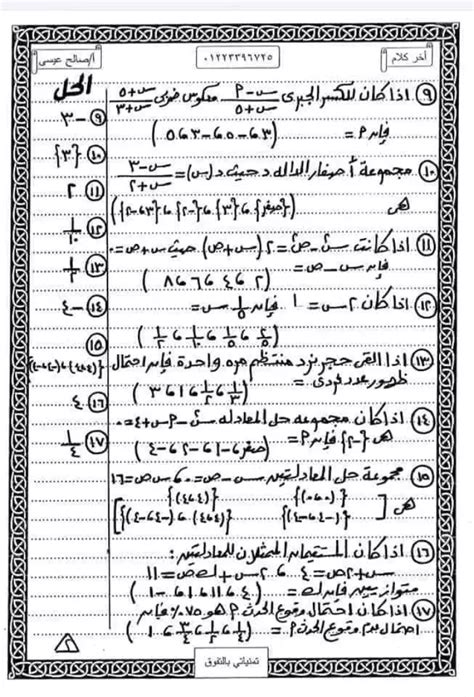 أخر كلام
٠١٢٢٣٣٩٦٧٢٥
أ/صالح عيسى
الحل
٩ اذا كان للكسر الجبرى (س - P)/(س + ٥) معكوس ضربى (س + ٥)/(س + ٣)
فإن P = (٣ ، -٥ ، -٣ ، ٥)
١٠ مجموعة أصفار الداله د حيث د(س) = (س - ٣)/(س + ٢)
هى ({صفر} ، {٣} ، {-٢} ، {٣ ، -٢})
١١ اذا كانت س² - ص² = ٢(س + ص) حيث س + ص ≠ ٠
فإن س - ص = (٢ ، ٤ ، ٦ ، ٨)
١٢ اذا كان ٢س = ١ فإن ١/٥ س =
(٢/٥ ، ١/٥ ، ١/١٠ ، ١/٢)
١٣ اذا القى حجر نرد منتظم مره واحدة فإن احتمال
ظهور عدد فردى = (١/٣ ، ١/٢ ، ١ ، ٣)
١٤ اذا كان مجموعه حل المعادله س² - P س + ٤ = ٠
هى {-٢} فإن P = (صفر ، -١ ، -٢ ، -٤)
١٥ مجموعة حل المعادلتين س - ص = ٠ ، س ص = ١٦
هى [ {(٠،٠)} {(٤،٤)}
{(-٤،-٤)} {(٤،٤) ، (-٤،-٤)} ]
١٦ اذا كان المستقيمان الممثلان للمعادلتين :
س + ٢ص = ٤ ، ٢س + ك ص = ١١
متوازيين فإن ك = (٤ ، ١١ ، ١ ، -١)
١٧ اذا كان احتمال وقوع الحدث P هو ٧٥٪ فإن
احتمال عدم وقوع الحدث P = (١/٤ ، ١/٢ ، ٣/٤ ، ١)
٩ -٣
١٠ {٣}
١١ ٢
١٢ ١/١٠
١٣ ١/٢
١٤ -٤
١٥ {(٤،٤) ، (-٤،-٤)}
١٦ ٤
١٧ ١/٤
تمنياتي بالتفوق
٢